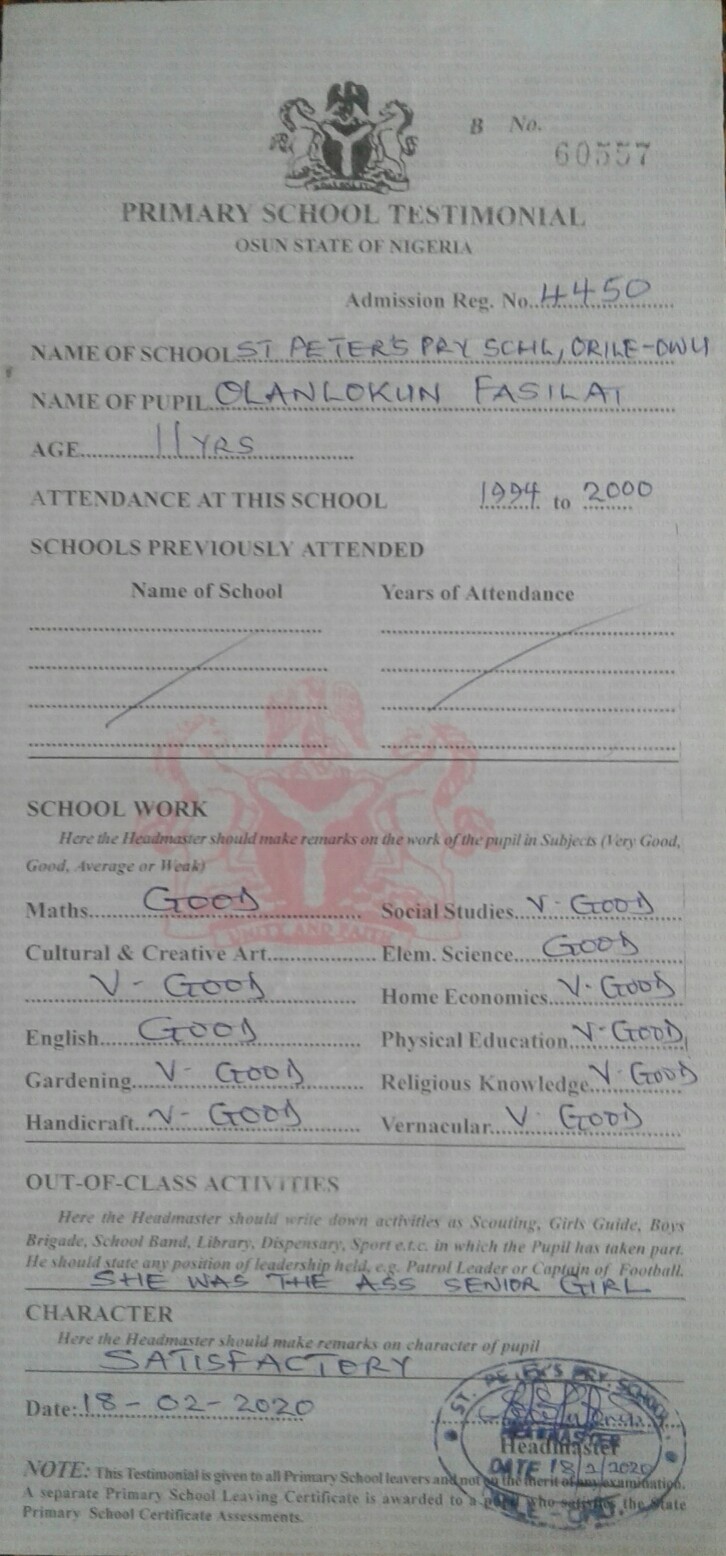 B No.
60557
PRIMARY SCHOOL TESTIMONIAL
OSUN STATE OF NIGERIA
Admission Reg. No. 4450
NAME OF SCHOOL ST PETER'S PRY SCHL, ORILE-OWU
NAME OF PUPIL OLANLOKUN FASILAT
AGE 11 YRS
ATTENDANCE AT THIS SCHOOL 1994 to 2000
SCHOOLS PREVIOUSLY ATTENDED
Name of School Years of Attendance
UNITY AND FAITH
SCHOOL WORK
Here the Headmaster should make remarks on the work of the pupil in Subjects (Very Good,
Good, Average or Weak)
Maths GOOD Social Studies V. GOOD
Cultural & Creative Art Elem. Science GOOD
V- GOOD Home Economics V. GOOD
English GOOD Physical Education V-GOOD
Gardening V- GOOD Religious Knowledge V. GOOD
Handicraft V- GOOD Vernacular V. GOOD
OUT-OF-CLASS ACTIVITIES
Here the Headmaster should write down activities as Scouting, Girls Guide, Boys
Brigade, School Band, Library, Dispensary, Sport e.t.c. in which the Pupil has taken part.
He should state any position of leadership held, e.g. Patrol Leader or Captain of Football.
SHE WAS THE ASS SENIOR GIRL
CHARACTER
Here the Headmaster should make remarks on character of pupil
SATISFACTORY
Date: 18-02-2020
ST. PETER'S PRY. SCHOOL
HEADMASTER
Headmaster
DATE 18/2/2020
NOTE: This Testimonial is given to all Primary School leavers and not on the merit of any examination.
A separate Primary School Leaving Certificate is awarded to a pupil who satisfies the State
Primary School Certificate Assessments.